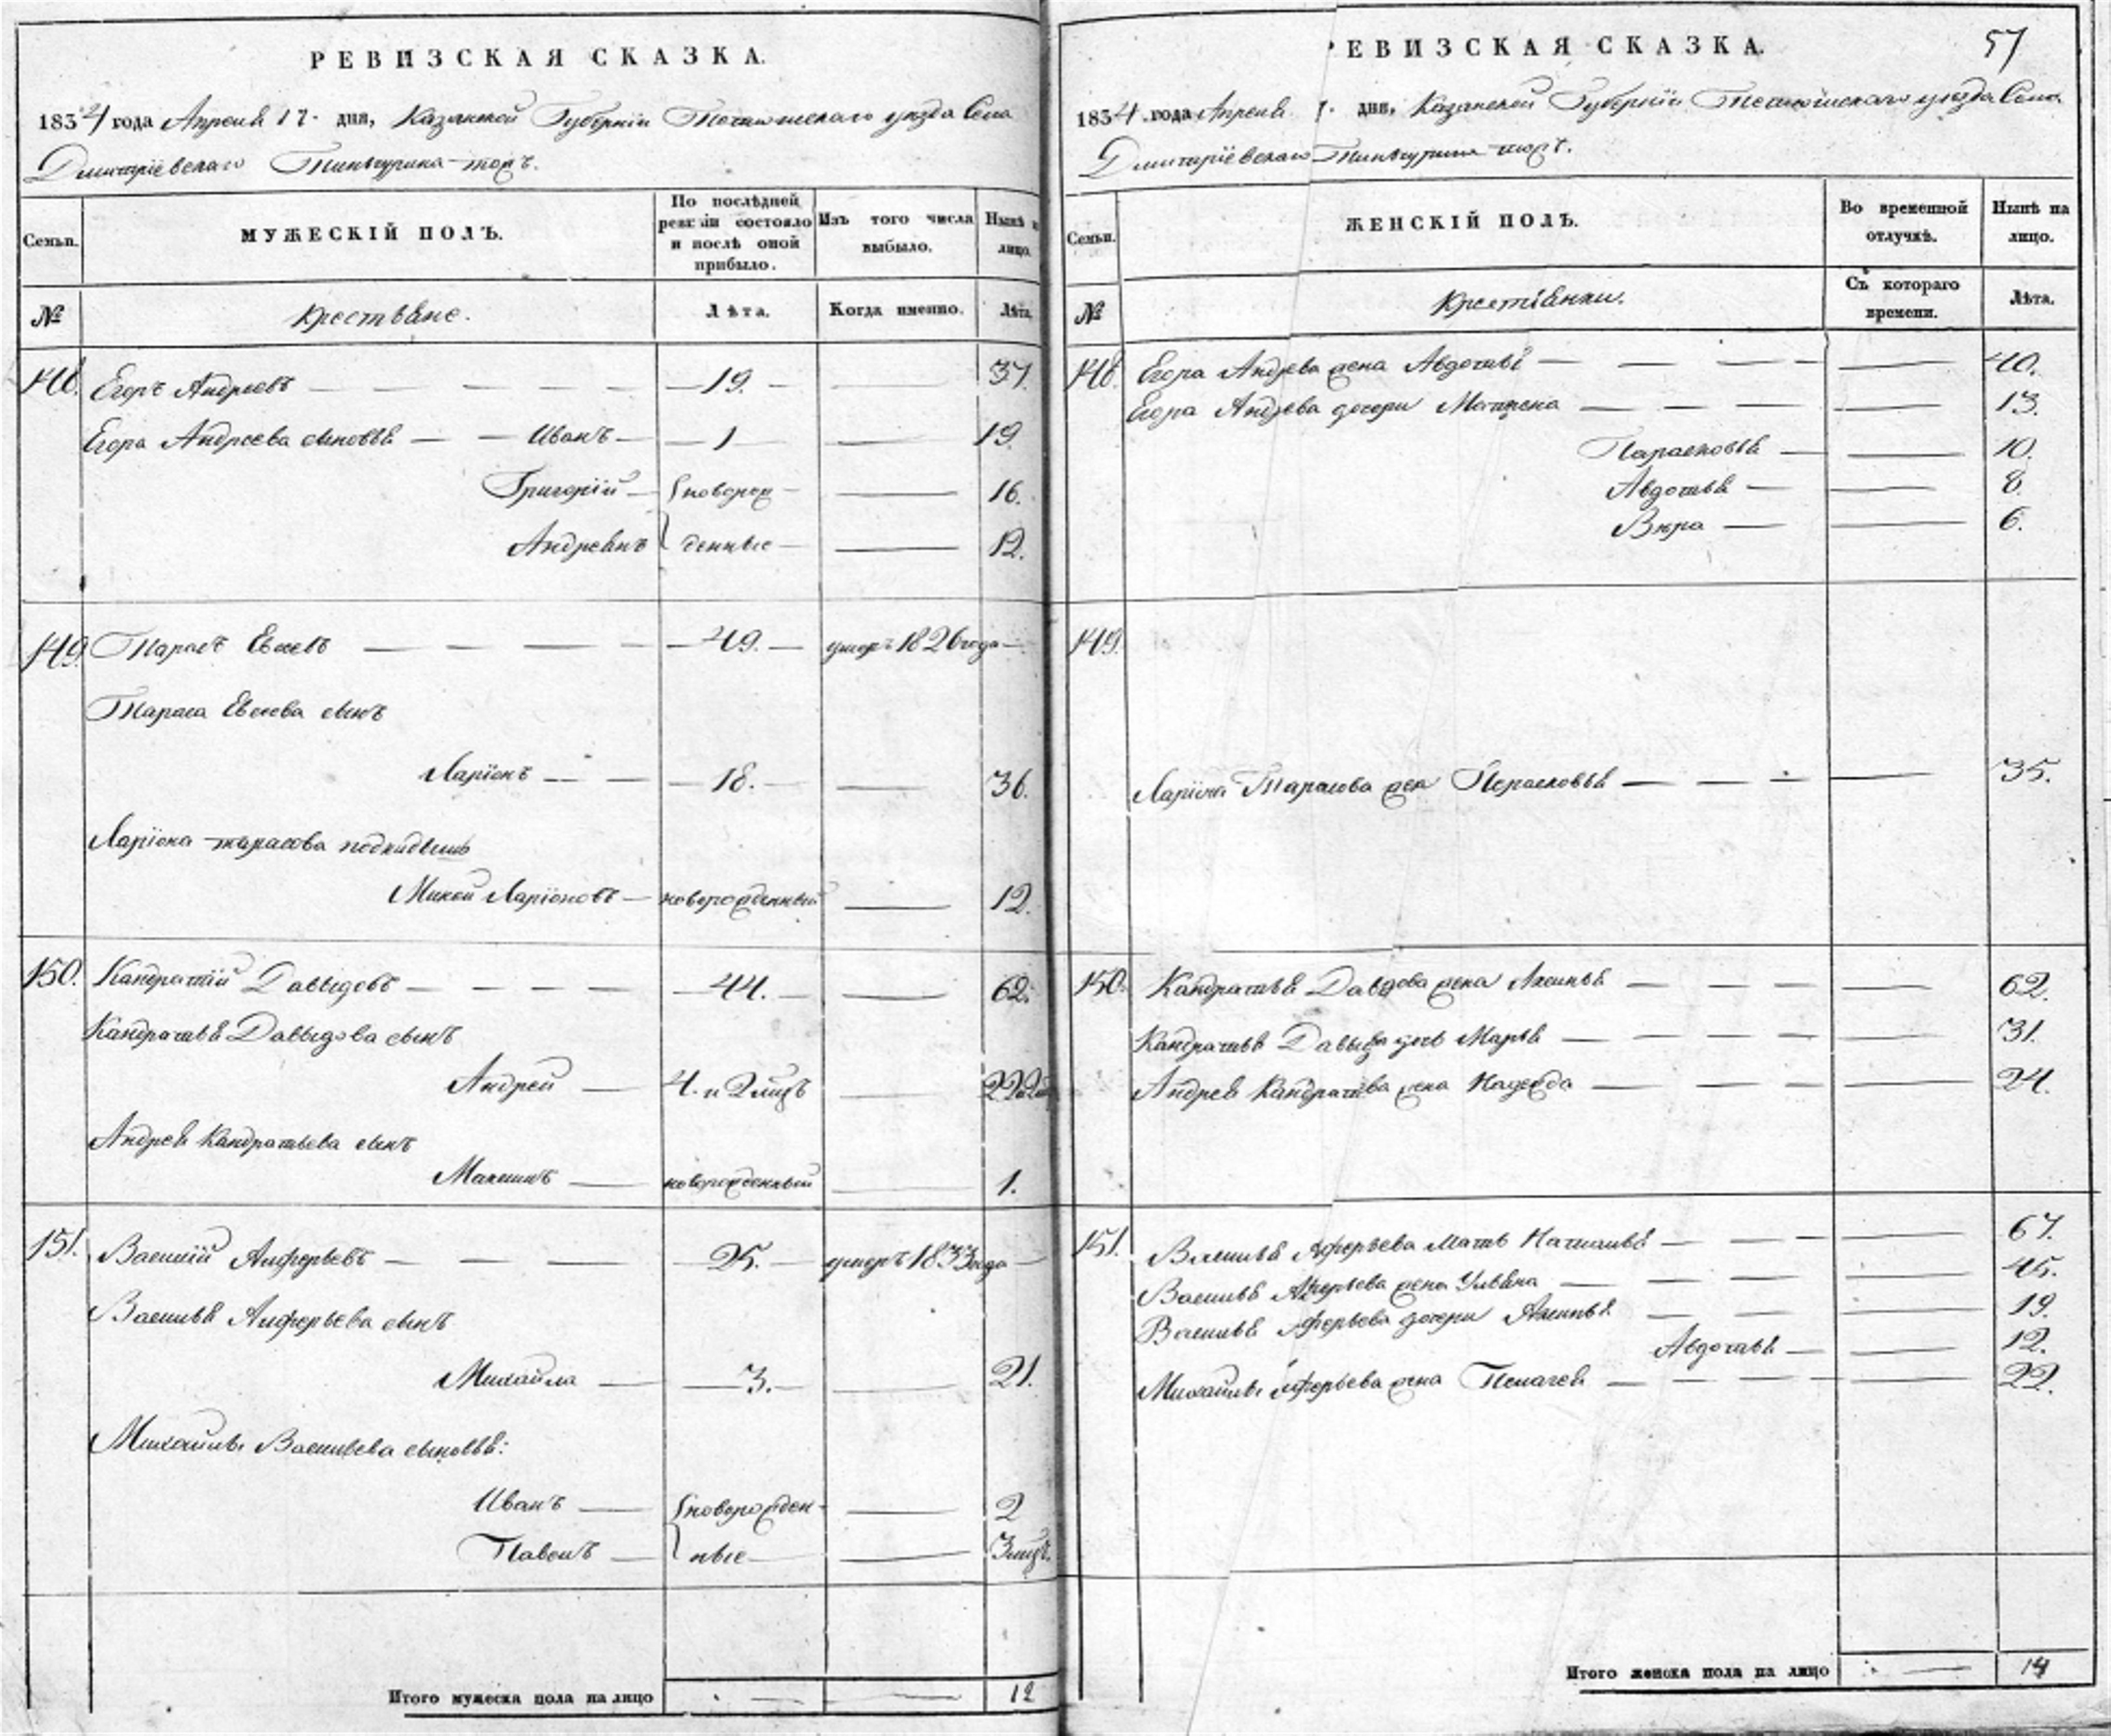 РЕВИЗСКАЯ СКАЗКА.
1834 года Апреля 17 дня, Казанской Губернiи уезда Села
Дмитрiевскаго
Семьи.
МУЖЕСКIЙ ПОЛЪ.
По послѣдней ревизiи состояло и послѣ оной прибыло.
Изъ того числа выбыло.
Нынѣ на лицо.
№
Крестьяне.
Лѣта.
Когда именно.
Лѣта.
148. Егоръ Андреевъ — 19. — 37.
Егора Андреева сыновья — Иванъ — 1 — 19.
Григорiй — новорож — 16.
Андреянъ денные — 12.
149. Тарасъ Евсевъ — 49. — умеръ 1826 года —
Тараса Евсева сынъ
Ларiонъ — 18. — 36.
Ларiона тарасова подкидышъ
Ларiоновъ — новорожденный — 12.
150. Кандратiй Давыдовъ — 44. — 62.
Кандратья Давыдова сынъ
Андрей — 4. и 2 мцъ — 22
Андрея Кандратьева сынъ
Максимъ — новорожденный — 1.
151. Василiй Алферьевъ — 25. — умеръ 1833 года —
Василья Алферьева сынъ
Михайла — 3. — 21.
Михайлы Васильева сыновья:
Иванъ — новорожден- — 2
Павелъ — ные — 3 мцъ.
Итого мужеска пола на лицо — 12
57
РЕВИЗСКАЯ СКАЗКА.
1834 года Апреля дня, Казанской Губернiи уезда Села
Дмитрiевскаго
Семьи.
ЖЕНСКIЙ ПОЛЪ.
Во временной отлучкѣ.
Нынѣ на лицо.
№
Крестьянки.
Съ котораго времени.
Лѣта.
148. Егора Андрева жена Авдотья — 40.
Егора Андрева дочери Матрена — 13.
Парасковья — 10.
Авдотья — 8.
Вера — 6.
149.
Ларiона Тарасова жена Парасковья — 35.
150. Кандратья Давыдова жена Аксинья — 62.
Кандратья Давыдова дочь Марья — 31.
Андрея Кандратьева жена Надежда — 24.
151. Василья Алферьева Мать Наталья — 67.
Василья Алферьева жена Ульяна — 45.
Василья Алферьева дочери Аксинья — 19.
Авдотья — 12.
Михайлы Алферьева жена — 22.
Итого женска пола на лицо — 14